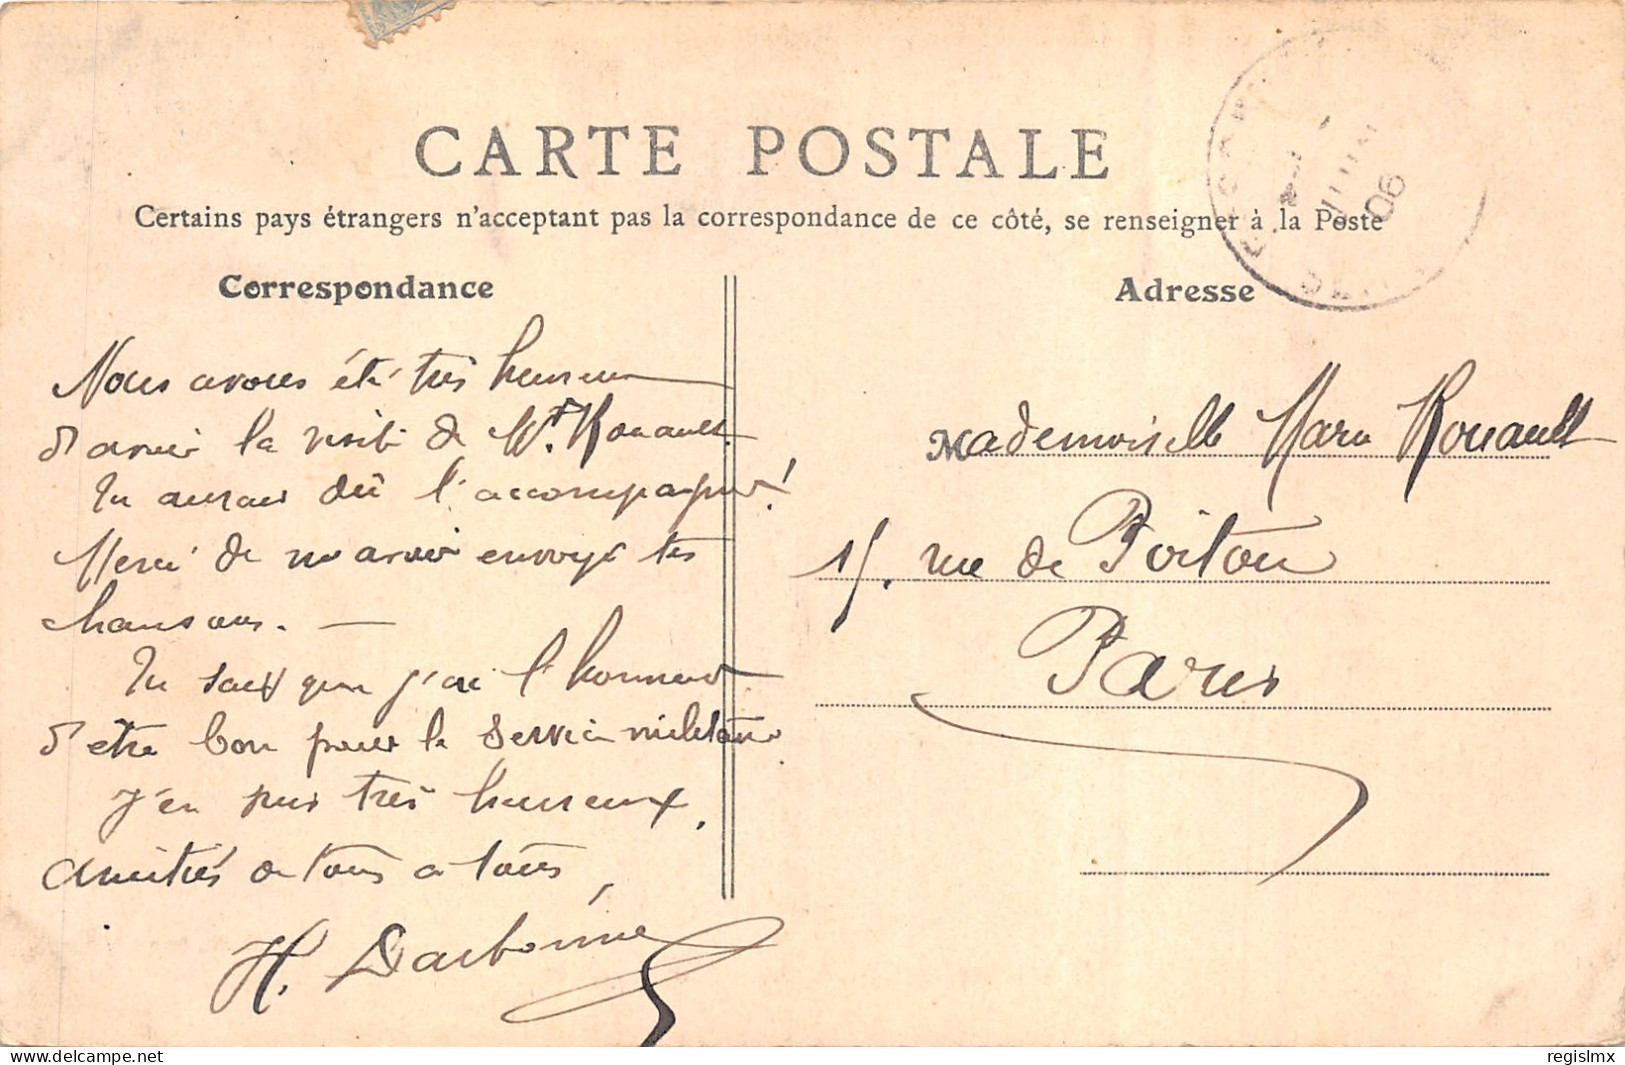 CARTE POSTALE
Certains pays étrangers n'acceptant pas la correspondance de ce côté, se renseigner à la Poste
Correspondance
Nous avons été très heureux
d'avoir la visite de Mr. Rouault.
Tu aurais dû l'accompagner!
Merci de m'avoir envoyé tes
chansons. —
Tu sais que j'ai l'honneur
d'être bon pour le service militaire
J'en suis très heureux.
Amitiés de tous à tous,
H. Darbonne
Adresse
06
Mademoiselle Marie Rouault
15. rue de Poitou
Paris
delcampe.net
regislmx